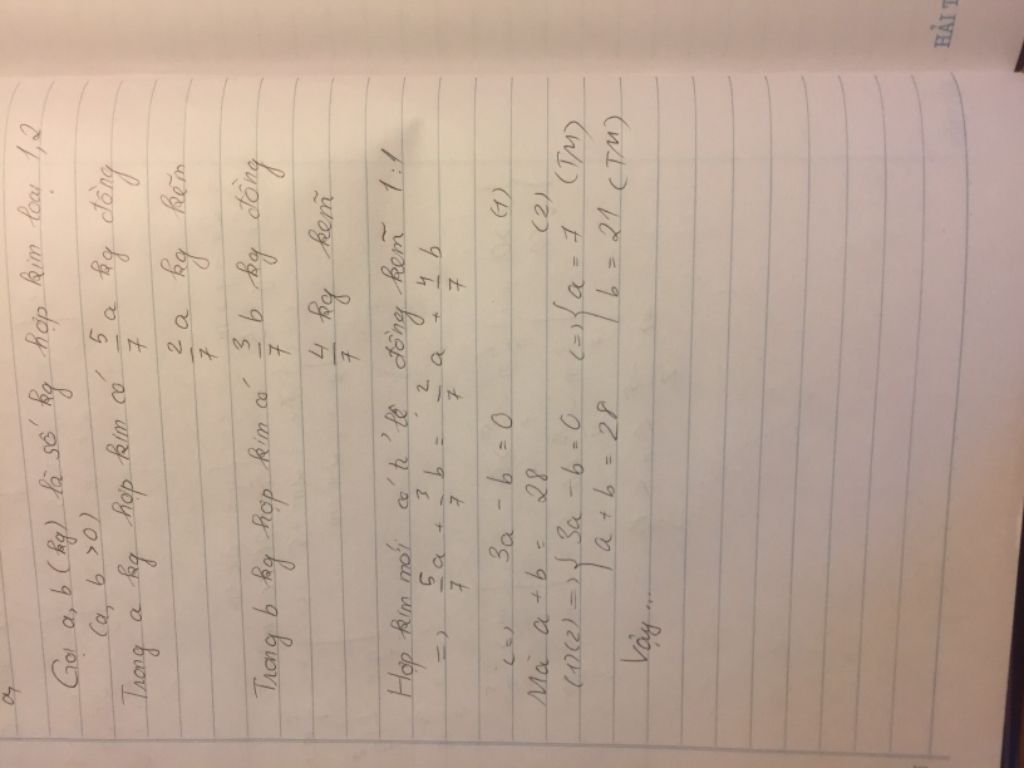 a,
Gọi a, b (kg) là số kg hợp kim loại 1, 2
(a, b > 0)
Trong a kg hợp kim có 5/7 a kg đồng
2/7 a kg kẽm
Trong b kg hợp kim có 3/7 b kg đồng
4/7 kg kẽm
Hợp kim mới có tỉ lệ đồng kẽm 1:1
=) 5/7 a + 3/7 b = 2/7 a + 4/7 b
(=) 3a - b = 0 (1)
Mà a + b = 28 (2)
(1)(2) =) { 3a - b = 0 (=) { a = 7 (TM)
a + b = 28 b = 21 (TM)
Vậy...
HẢI T